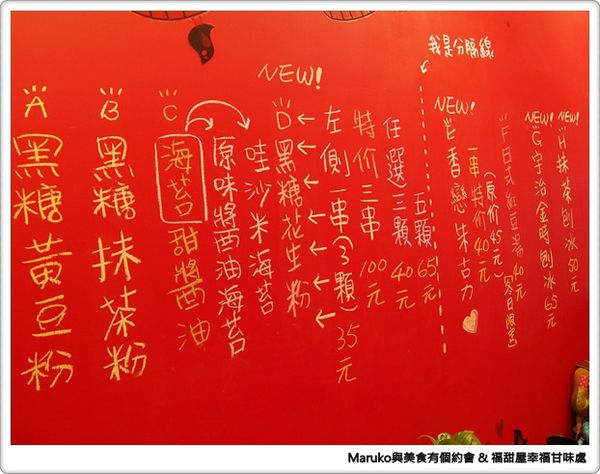 A 黑糖黃豆粉
B 黑糖抹茶粉
C 海苔甜醬油
原味醬油海苔
哇沙米海苔
NEW!
D 黑糖花生粉
左側一串(3顆)35元
特价三串100元
任選三顆40元
五顆65元
我是分隔線
NEW!
E 香戀朱古力
一串特价40元
(原价45元)
F 日式紅豆湯40元
冬日限定
NEW!
G 宇治金時刨冰65元
NEW!
H 抹茶刨冰50元
Maruko與美食有個約會 & 福甜屋幸福甘味處